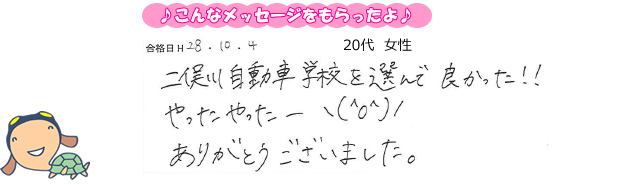 ♪こんなメッセージをもらったよ♪
合格日 H 28.10.4 20代 女性
二俣川自動車学校を選んで良かった!!
やったやったー ヽ(^o^)ノ
ありがとうございました。